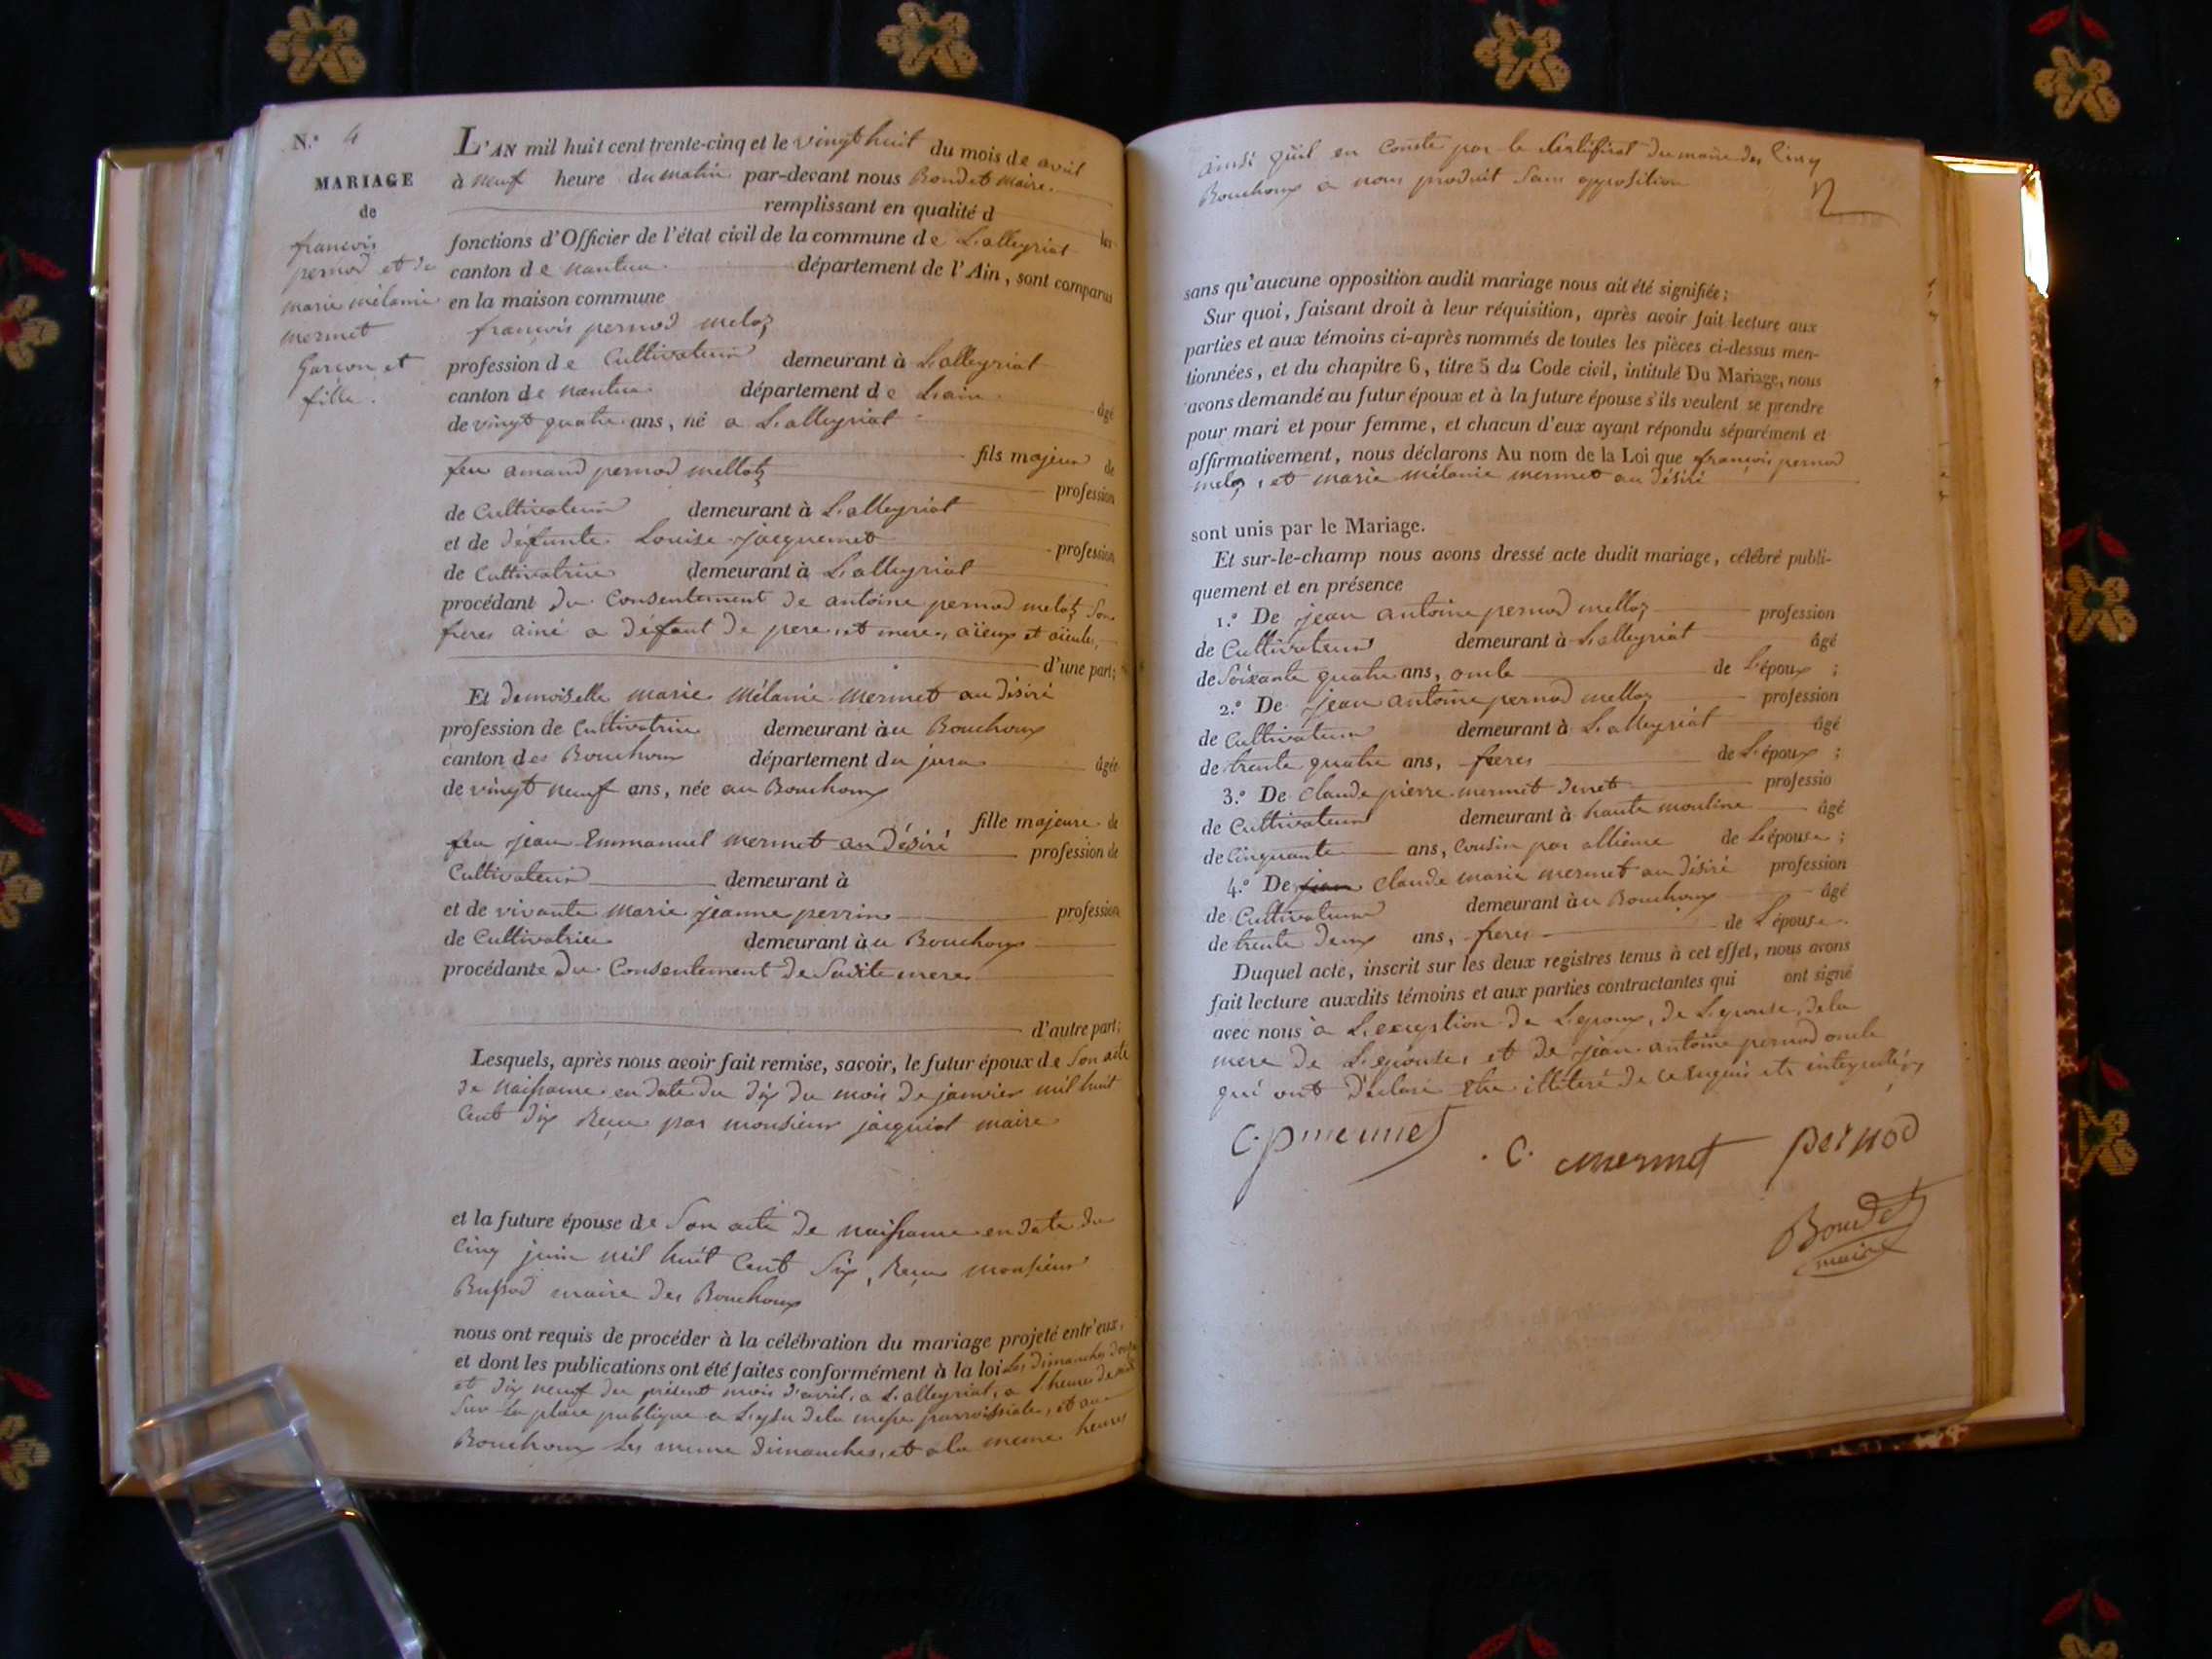 N.° 4
MARIAGE
de
francois
pernod et de
marie mélanie
mermet
Garcon et
fille.
L'AN mil huit cent trente-cinq et le vingt huit du mois de avril
à neuf heure du matin par-devant nous Boudet maire
remplissant en qualité d les
fonctions d'Officier de l'état civil de la commune de Lalleyriat
canton de nantua département de l'Ain, sont comparus
en la maison commune
francois pernod meloz
profession de Cultivateur demeurant à Lalleyriat
canton de nantua département de Lain âgé
de vingt quatre ans, né a Lalleyriat
fils majeur de
feu amand pernod mellotz profession
de Cultivateur demeurant à Lalleyriat
et de défunte Louise jacquemet profession
de Cultivatrice demeurant à Lalleyriat
procédant du Consentement de antoine pernod melotz Son
freres ainé a défaut de pere et mere, aïeux et aïeule,
d'une part;
Et demoiselle marie mélanie mermet au désiré
profession de Cultivatrice demeurant àu Bouchoux
canton des Bouchoux département du jura âgée
de vingt neuf ans, née au Bouchoux
fille majeure de
feu jean Emmanuel mermet au Désiré profession de
Cultivateur demeurant à
et de vivante marie jeanne perrin profession
de Cultivatrice demeurant àu Bouchoux
procédante du Consentement de Sadite mere
d'autre part;
Lesquels, après nous avoir fait remise, savoir, le futur époux de Son acte
de naissance en date du dix du mois de janvier mil huit
Cent dix Reçu par monsieur jacquiot maire
et la future épouse de Son acte de naissance en date du
Cinq juin mil huit Cent Six, Reçu monsieur
Bussod maire des Bouchoux
nous ont requis de procéder à la célébration du mariage projeté entr'eux,
et dont les publications ont été faites conformément à la loi Les dimanches douze
et dix neuf du présent mois d'avril, a Lalleyriat, a l'heure de midi
Sur la place publique a L'issu de la messe parroissiale, et au
Bouchoux Les meme dimanches, et a la meme heures
ainsi qu'il en Conste par le Certificat du maire des
Bouchoux a nous produit Sans opposition
sans qu'aucune opposition audit mariage nous ait été signifiée;
Sur quoi, faisant droit à leur réquisition, après avoir fait lecture aux
parties et aux témoins ci-après nommés de toutes les pièces ci-dessus men-
tionnées, et du chapitre 6, titre 5 du Code civil, intitulé Du Mariage, nous
avons demandé au futur époux et à la future épouse s'ils veulent se prendre
pour mari et pour femme, et chacun d'eux ayant répondu séparément et
affirmativement, nous déclarons Au nom de la Loi que françois pernod
meloz, et marie mélanie mermet au désiré
sont unis par le Mariage.
Et sur-le-champ nous avons dressé acte dudit mariage, célébré publi-
quement et en présence
1.° De jean antoine pernod melloz profession
de Cultivateur demeurant à Lalleyriat âgé
de Soixante quatre ans, oncle de L'époux ;
2.° De jean antoine pernod melloz profession
de Cultivateur demeurant à Lalleyriat âgé
de trente quatre ans, freres de L'époux ;
3.° De Claude pierre mermet profession
de Cultivateur demeurant à haute mouline âgé
de Cinquante ans, Cousin par alliance de L'épouse ;
4.° De jean Claude marie mermet au désiré profession
de Cultivateur demeurant àu Bouchoux âgé
de trente deux ans, freres de L'épouse.
Duquel acte, inscrit sur les deux registres tenus à cet effet, nous avons
fait lecture auxdits témoins et aux parties contractantes qui ont signé
avec nous à L'exception de L'epoux, de L'epouse, de la
mere de L'epouse, et de jean antoine pernod oncle
qui ont déclaré Etre illiteré de ce Enquis et interpellés
C. p mermet
C. mermet
pernod
Boudet
maire